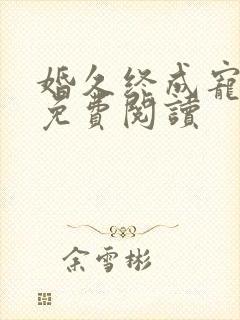 婚久终成寵
免費閱讀
余雪彬